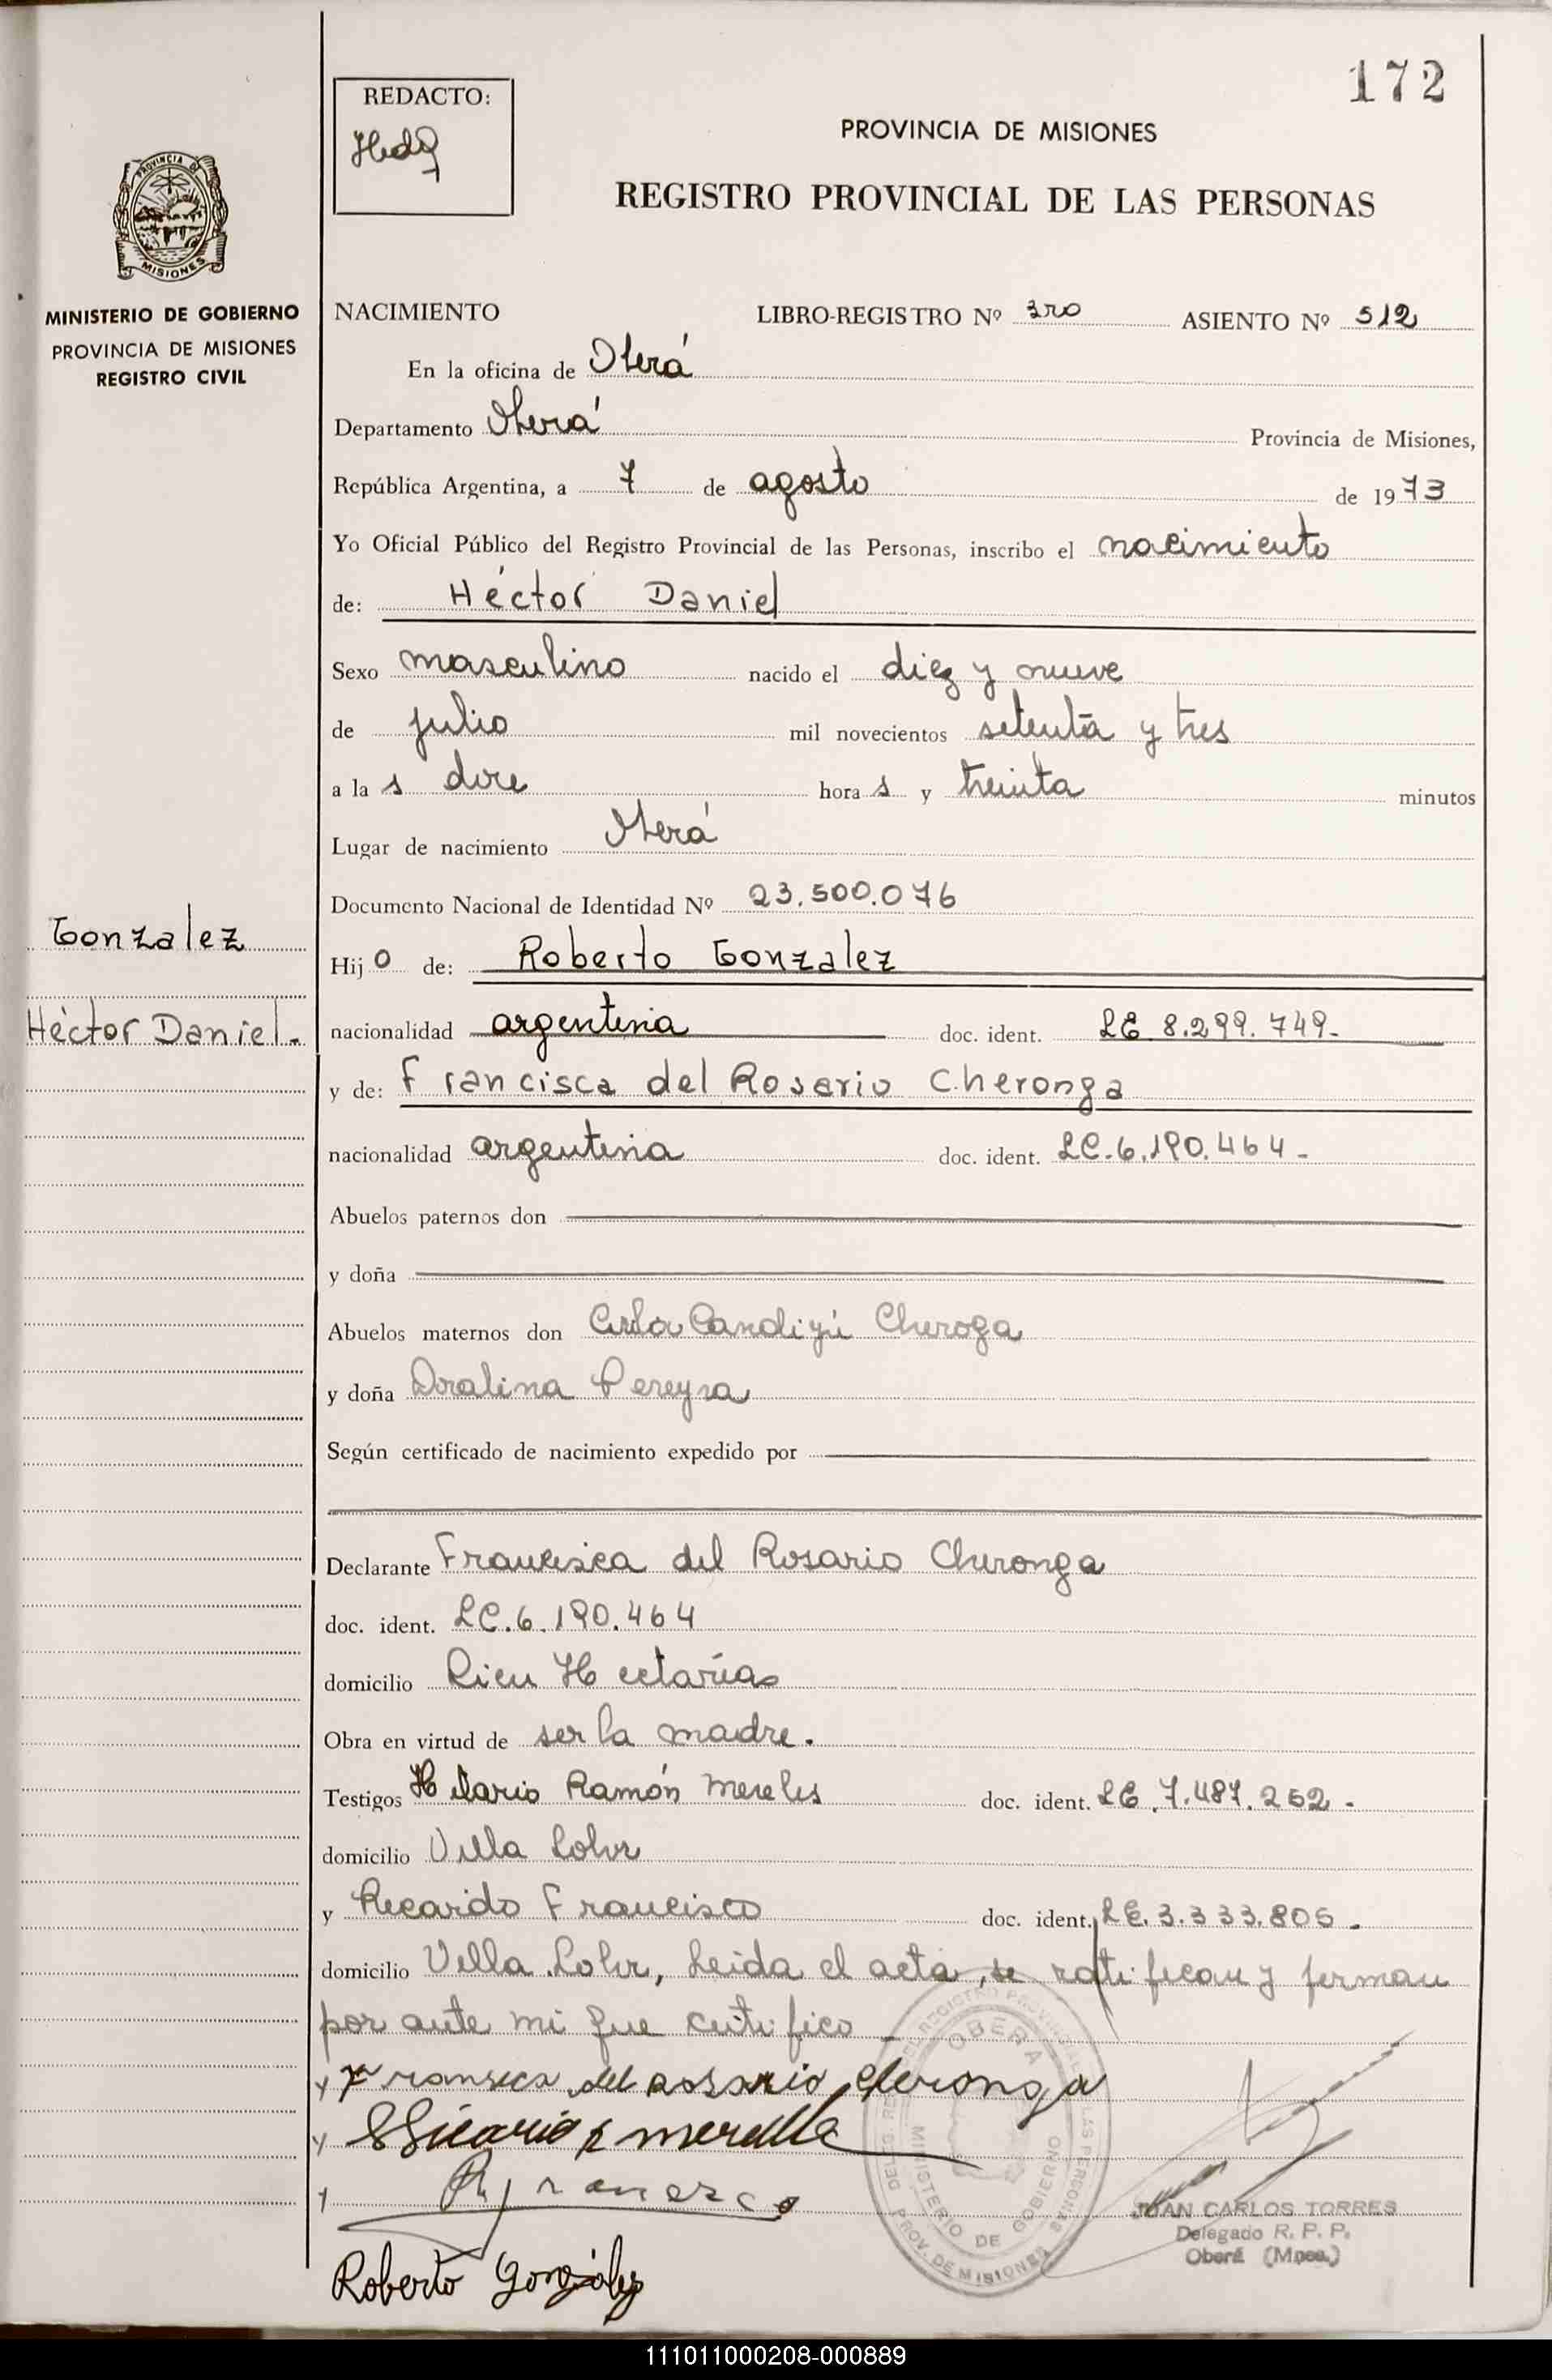 172
REDACTO:
PROVINCIA DE MISIONES
REGISTRO PROVINCIAL DE LAS PERSONAS
PROVINCIA DE
MISIONES
MINISTERIO DE GOBIERNO
PROVINCIA DE MISIONES
REGISTRO CIVIL
NACIMIENTO LIBRO-REGISTRO Nº 3ro ASIENTO Nº 512
En la oficina de Oberá
Departamento Oberá Provincia de Misiones,
República Argentina, a 7 de agosto de 1973
Yo Oficial Público del Registro Provincial de las Personas, inscribo el nacimiento
de: Héctor Daniel
Sexo masculino nacido el diez y nueve
de julio mil novecientos setenta y tres
a la s doce hora s y treinta minutos
Lugar de nacimiento Oberá
Documento Nacional de Identidad Nº 23.500.076
Gonzalez
Hijo de: Roberto Gonzalez
Héctor Daniel.
nacionalidad argentina doc. ident. LE 8.299.749-
y de: Francisca del Rosario Cheronga
nacionalidad argentina doc. ident. LC.6.190.464-
Abuelos paternos don
y doña
Abuelos maternos don Candiyú Cheroga
y doña Doralina Pereyra
Según certificado de nacimiento expedido por
Declarante Francisca del Rosario Cheronga
doc. ident. LC.6.190.464
domicilio Cien Hectarias
Obra en virtud de ser la madre.
Testigos Hilario Ramón Mereles doc. ident. LE.7.487.252-
domicilio Villa Lohr
y Ricardo Francisco doc. ident. LE.3.333.805-
domicilio Villa Lohr, Leida el acta, se ratifican y firman
por ante mi que certifico
Cheronga
Roberto González
DELEG. REGISTRO PROVINCIAL LAS PERSONAS
OBERA
MINISTERIO DE GOBIERNO
PROV. DE MISIONES
JUAN CARLOS TORRES
Delegado R. P. P.
Oberá (Mnes.)
111011000208-000889